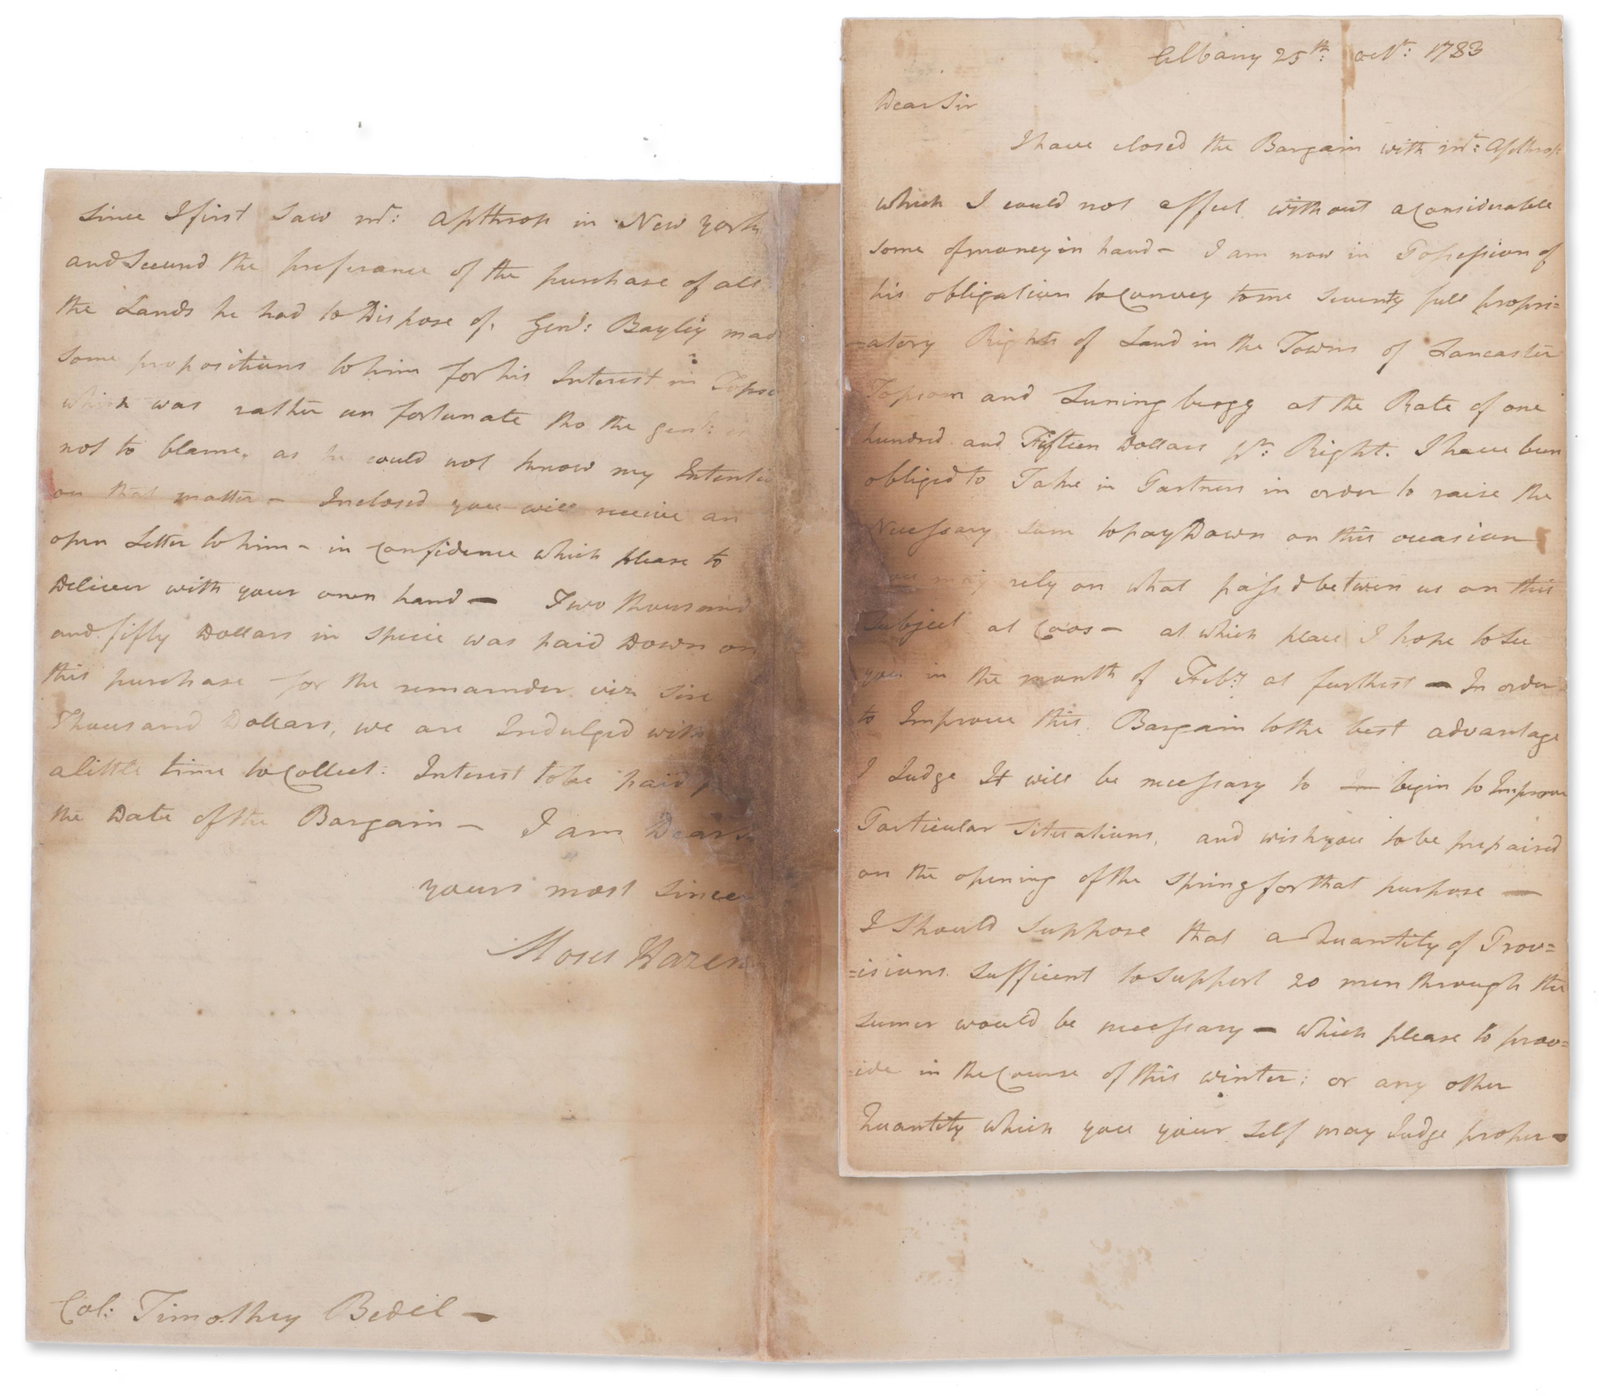 Albany 25th: octr: 1783
Dear Sir
I have closed the Bargain with mr: Apthrop
which I could not affect without a Considerable
some of money in hand – I am now in Possession of
his obligation to Convey to me Seventy full propri=
=atory Rights of Land in the Towns of Lancaster
Topsom and Luningbergg at the Rate of one
hundred and Fifteen Dollars pr: Right. I have been
obliged to Take in Partners in order to raise the
Necessary Sum to pay Down on this occasion
you may rely on what passd between us on this
Subject at Coos – at which place I hope to See
you in the month of Feby: at furthest – In order
to Improve this Bargain to the best advantage
I Judge It will be necessary to begin to Improve
Particular Situations, and wish you to be prepaired
on the opening of the Spring for that purpose –
I Should Suppose that a Quantity of Prov=
=isions Sufficent to Support 20 men through the
Sumer would be necessary – which please to prov=
=ide in the Course of this winter; or any other
Quantity which you your Self may Judge proper –
Since I first Saw mr: Apthrop in New York
and Secured the preferance of the purchase of all
the Lands he had to Dispose of. Genl: Bayley mad
Some propositions to him for his Interest in Topso
which was rather un fortunate tho the genl:
not to blame, as he could not know my Intentio
on that matter – Inclosed you will receive an
open Letter to him – in Confidence which please to
Deliver with your own hand – Two thousand
and fifty Dollars in Specie was paid Down on
this purchase for the remainder viz Six
Thousand Dollars, we are Indulged with
a little time to Collect: Interest to be paid
the Date of the Bargain – I am Dear S
yours most Sincer
Moses Hazen
Col: Timothey Bedel –